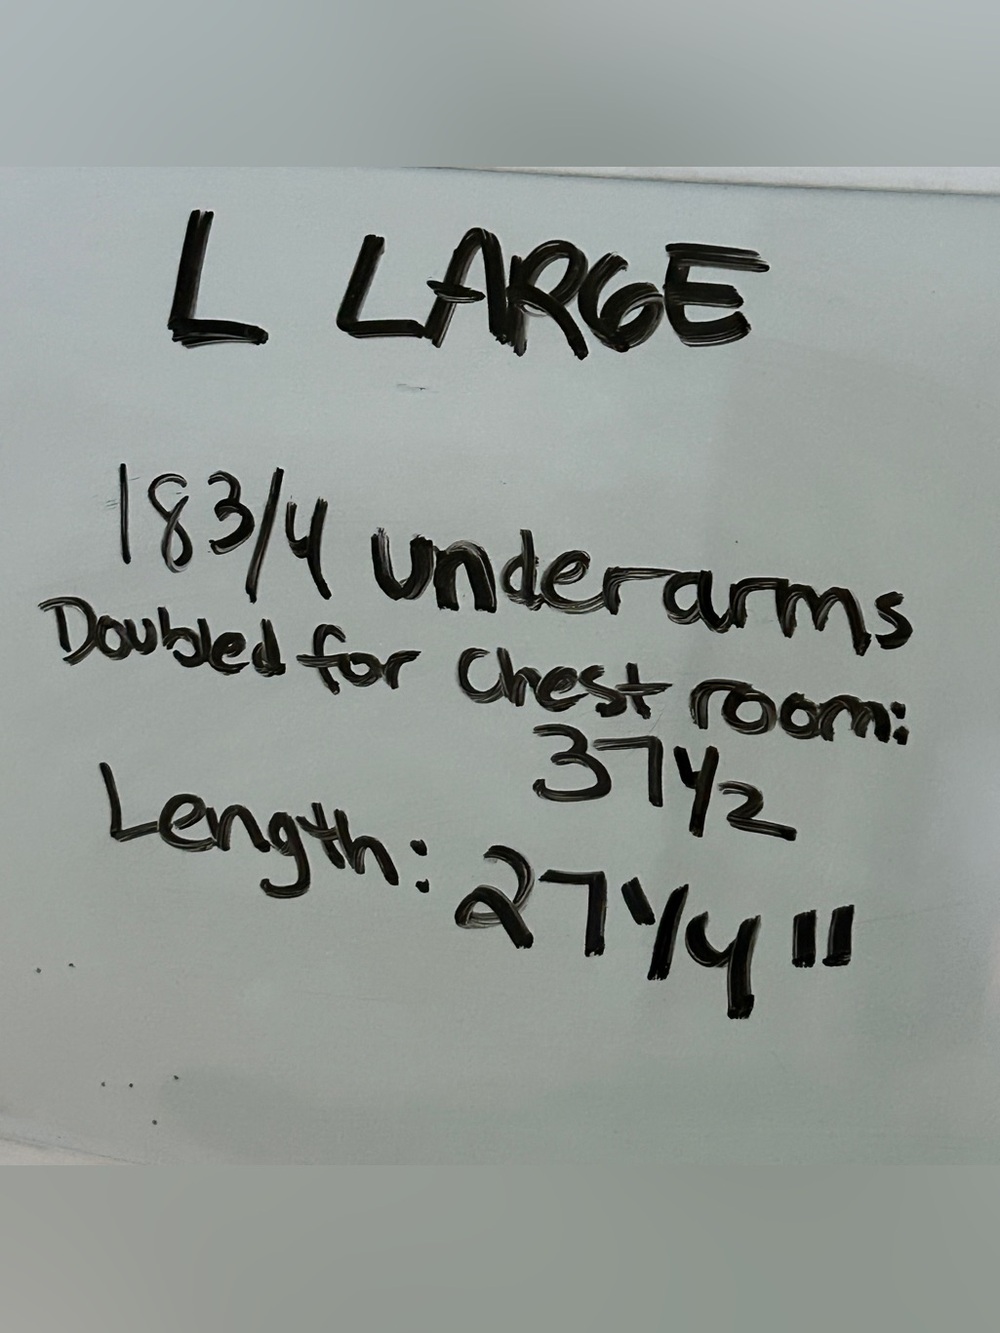 L LARGE
18 3/4 underarms
Doubled for Chest room:
37 1/2
Length: 27 1/4 "